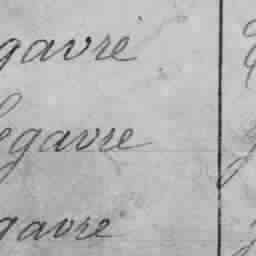 gavre
legavre
gavre